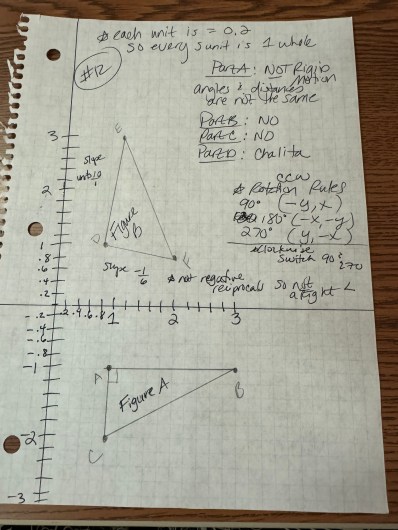 * each unit is = 0.2
so every 5 unit is 1 whole
#12
Part A: NOT Rigid
Motion
angles & distances
are not the same
Part B: NO
Part C: NO
Part D: Chalita
CCW
* Rotation Rules
90° (-y, x)
180° (-x, -y)
270° (y, -x)
clockwise
switch 90 & 270
E
3
slope
2
Figure
B
D
1
.8
.6
.4
.2
F
slope -1/6
* not negative
reciprocals so not
a right <
.2 .4 .6 .8 1 2 3
-.2
-.4
-.6
-.8
-1
A
B
Figure A
-2
C
-3